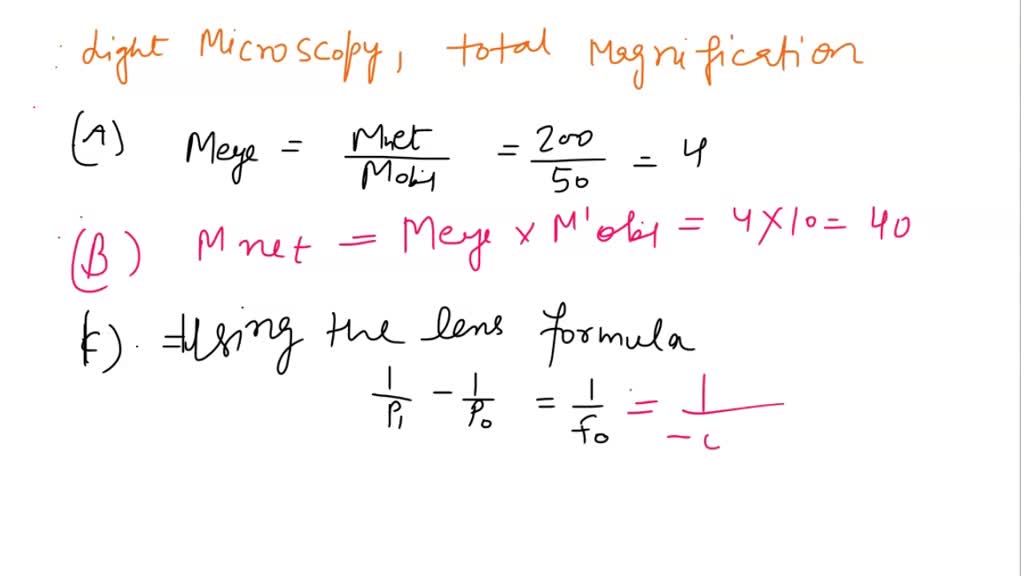 Light Microscopy, total Magnification
(A) Meye = Mnet/Mobj = 200/50 = 4
(B) Mnet = Meye × M'obj = 4×10 = 40
(c). ⇒ Using the lens formula
1/P₁ - 1/P₀ = 1/f₀ = 1/-c